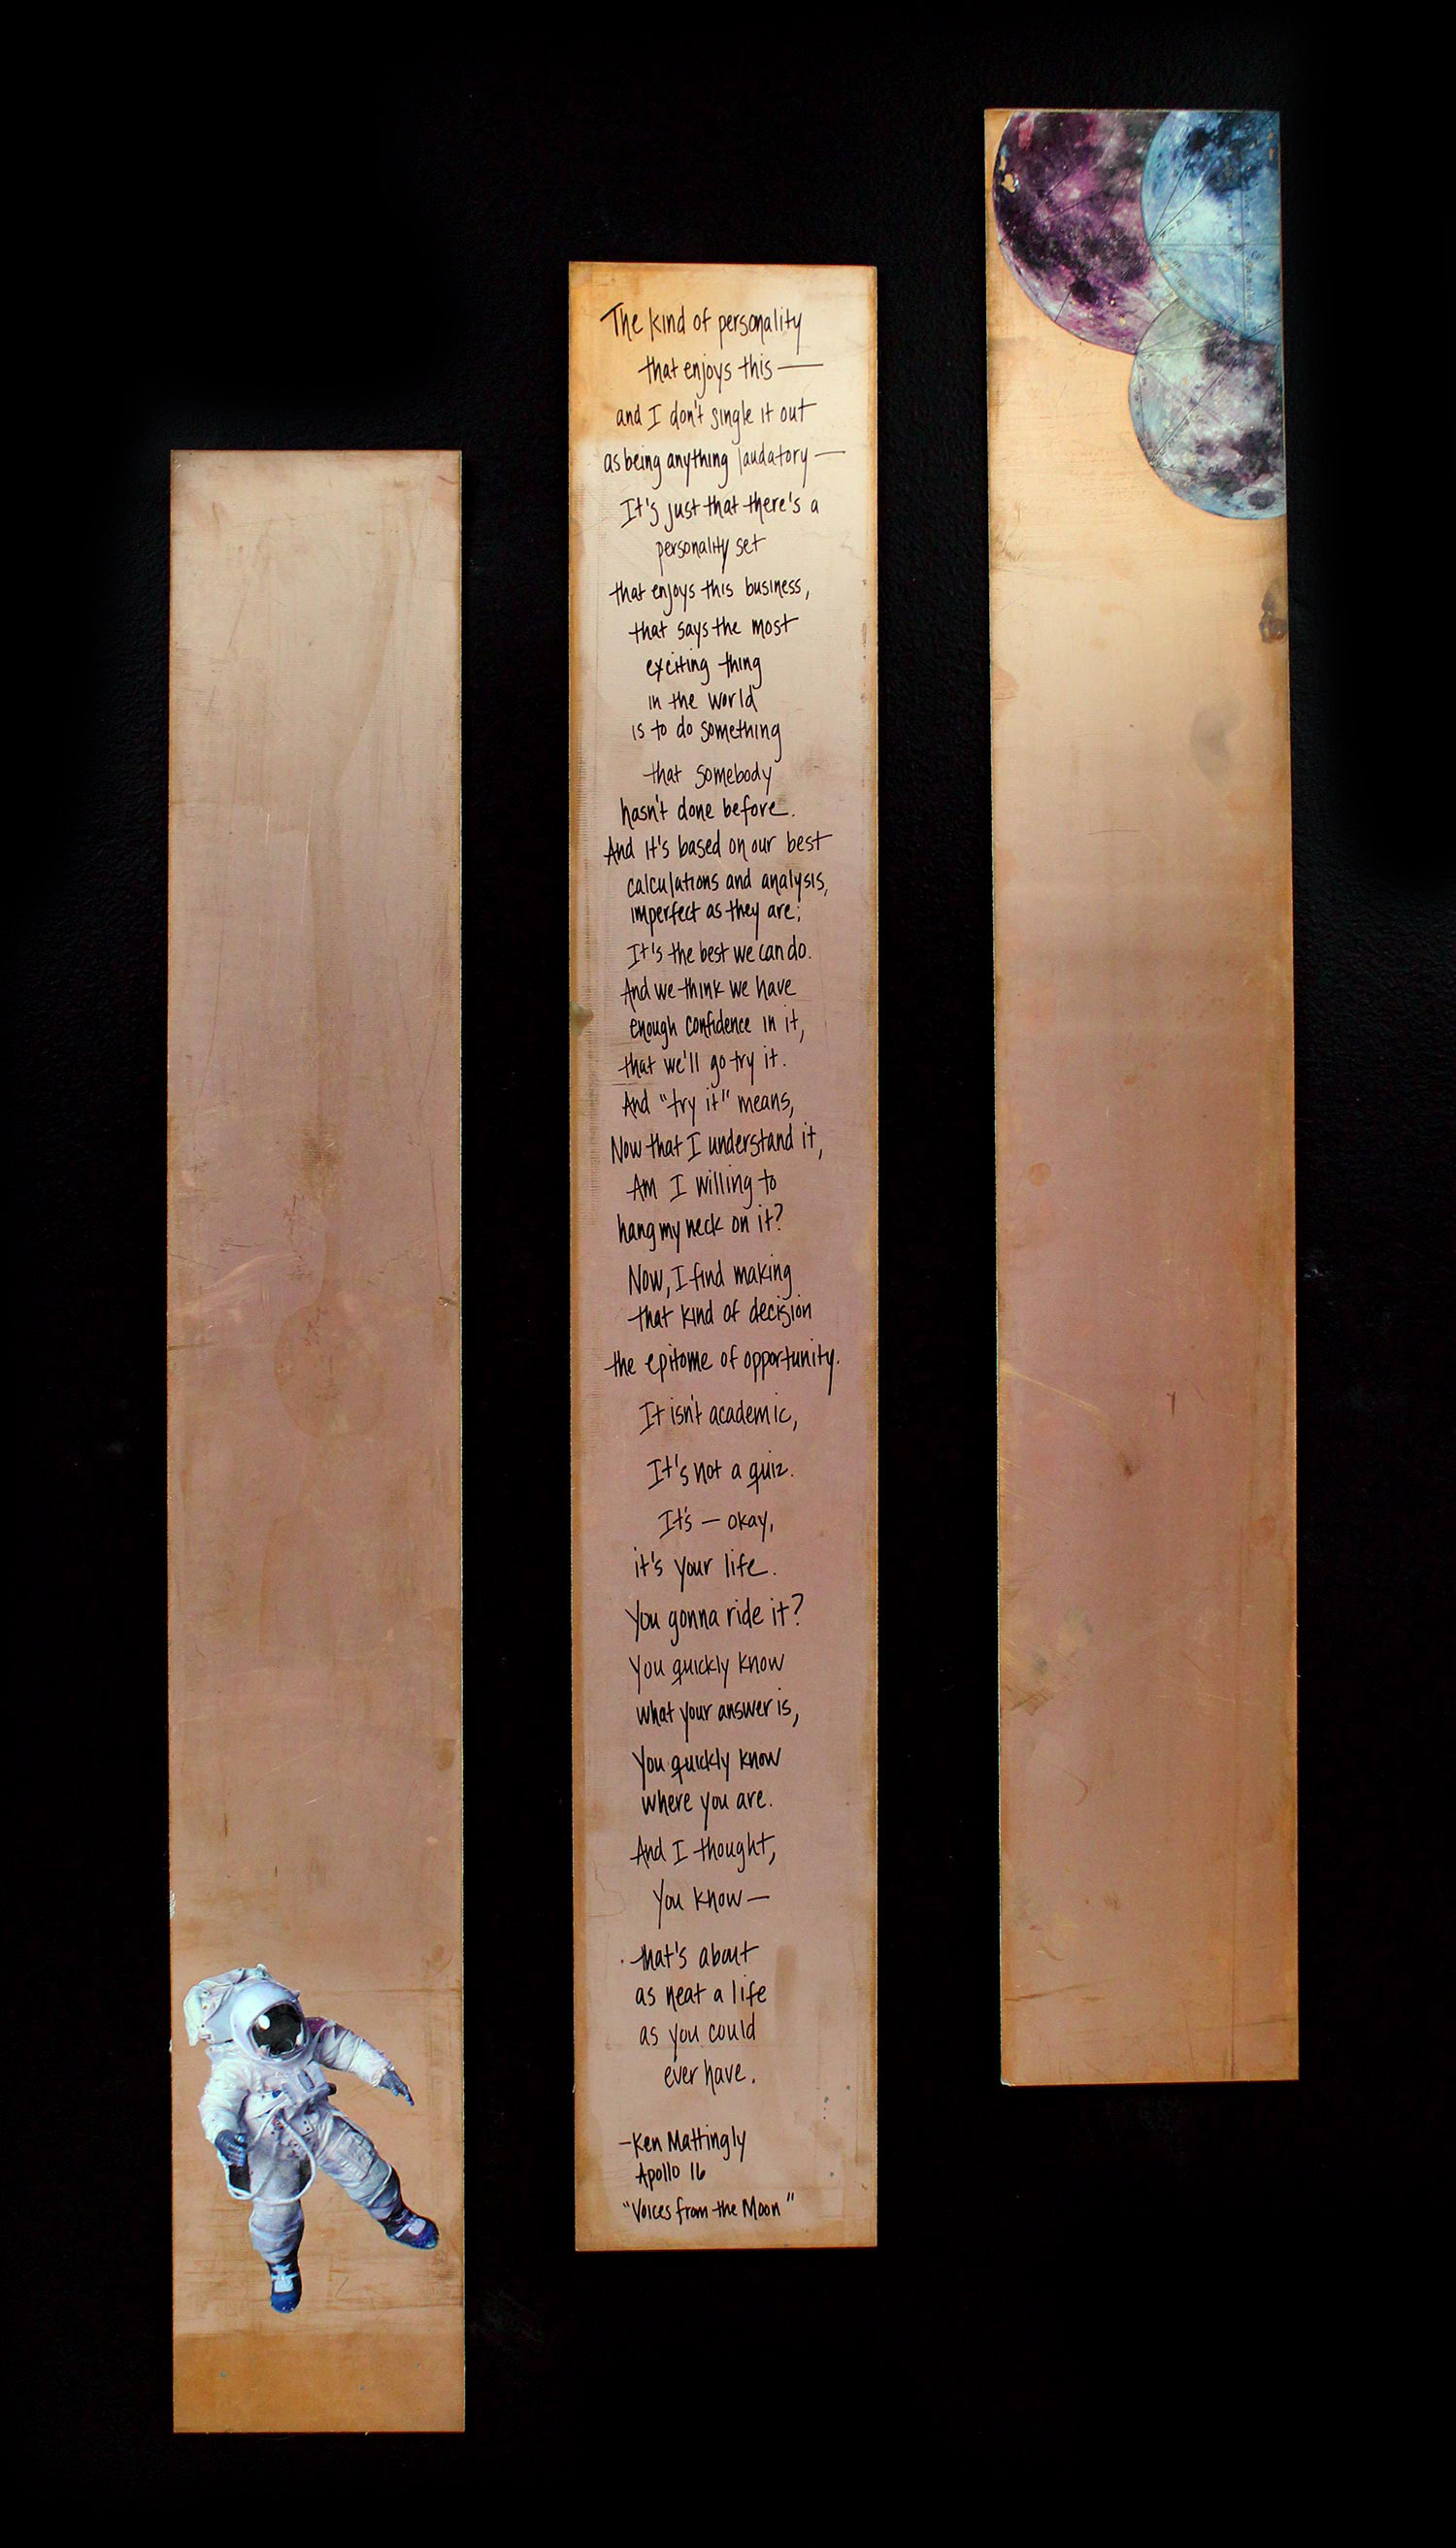 The kind of personality
that enjoys this —
and I don't single it out
as being anything laudatory —
It's just that there's a
personality set
that enjoys this business,
that says the most
exciting thing
in the world
is to do something
that somebody
hasn't done before.
And it's based on our best
calculations and analysis,
imperfect as they are;
It's the best we can do.
And we think we have
enough confidence in it,
that we'll go try it.
And "try it" means,
Now that I understand it,
Am I willing to
hang my neck on it?
Now, I find making
that kind of decision
the epitome of opportunity.
It isn't academic,
It's not a quiz.
It's — okay,
it's your life.
You gonna ride it?
You quickly know
what your answer is,
You quickly know
where you are.
And I thought,
you know —
that's about
as neat a life
as you could
ever have.
-Ken Mattingly
Apollo 16
"Voices from the Moon"